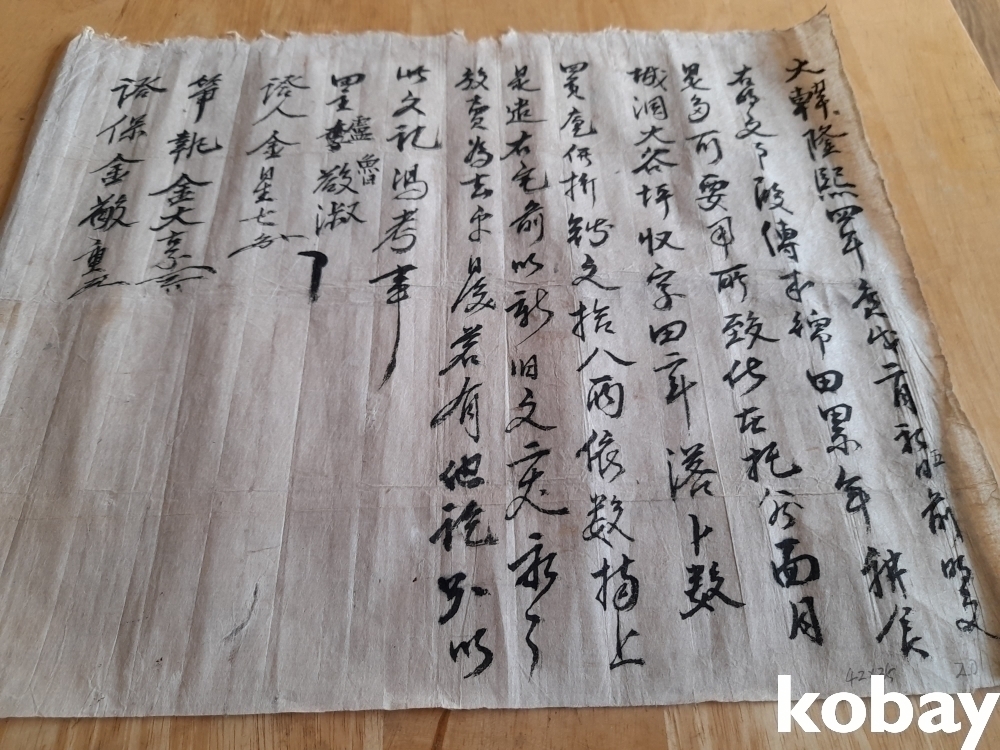 大韓隆熙四年庚戌二月初五日前明文
右明文事段傳來綿田累年耕食
是多可要用所致伏在托谷面月
城洞大谷坪收字田二斗落卜數
四負庫價折錢文拾八兩依數捧上
是遣右宅前以新旧文二丈永永
放賣為去乎日後若有他說則以
此文記憑考事
田主 盧 啟淑
證人金星七
筆執金大
證保金敬重
42×35
kobay